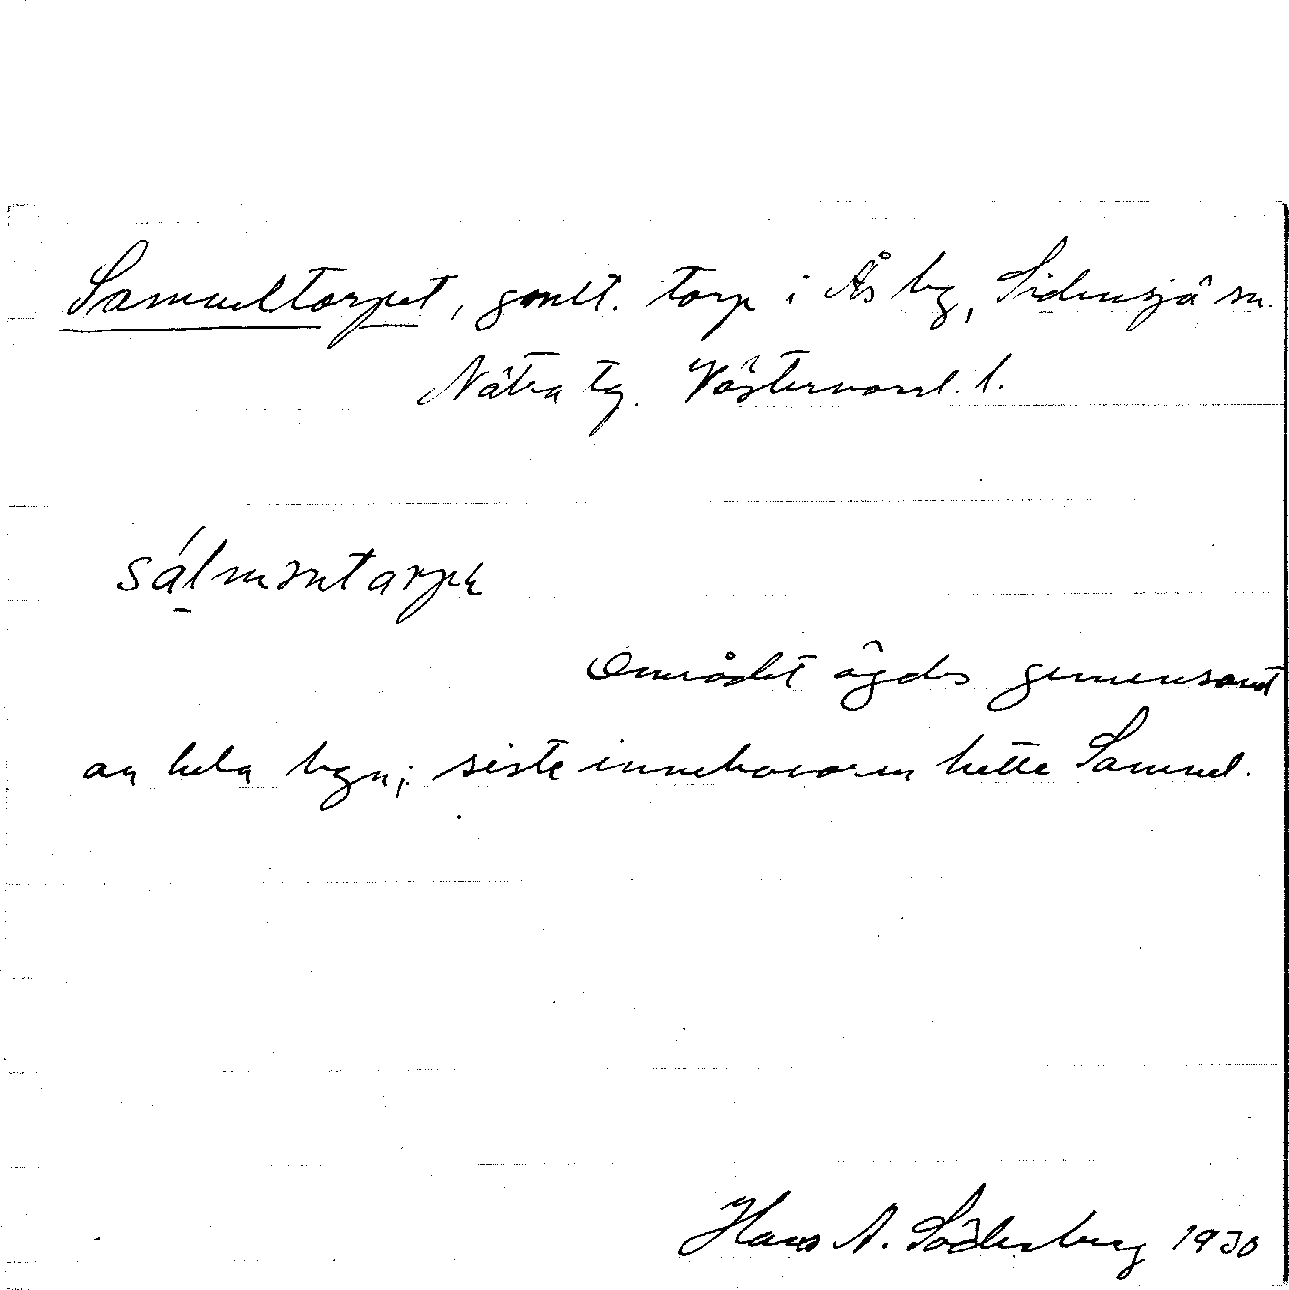 Samueltorpet, gmlt. torp i Ås by, Sidensjö sn.
Nätra tg. Västernorrl. l.
Området ägdes gemensamt
av hela byn; siste innehavaren hette Samuel.
Hans A. Söderberg 1930